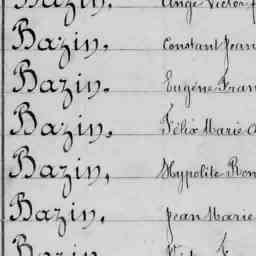 Bazin. Ange Victor
Bazin, Constant Jean
Bazin. Eugène Fran
Bazin, Félix Marie
Bazin, Hypolite
Bazin, Jean Marie
Bazin